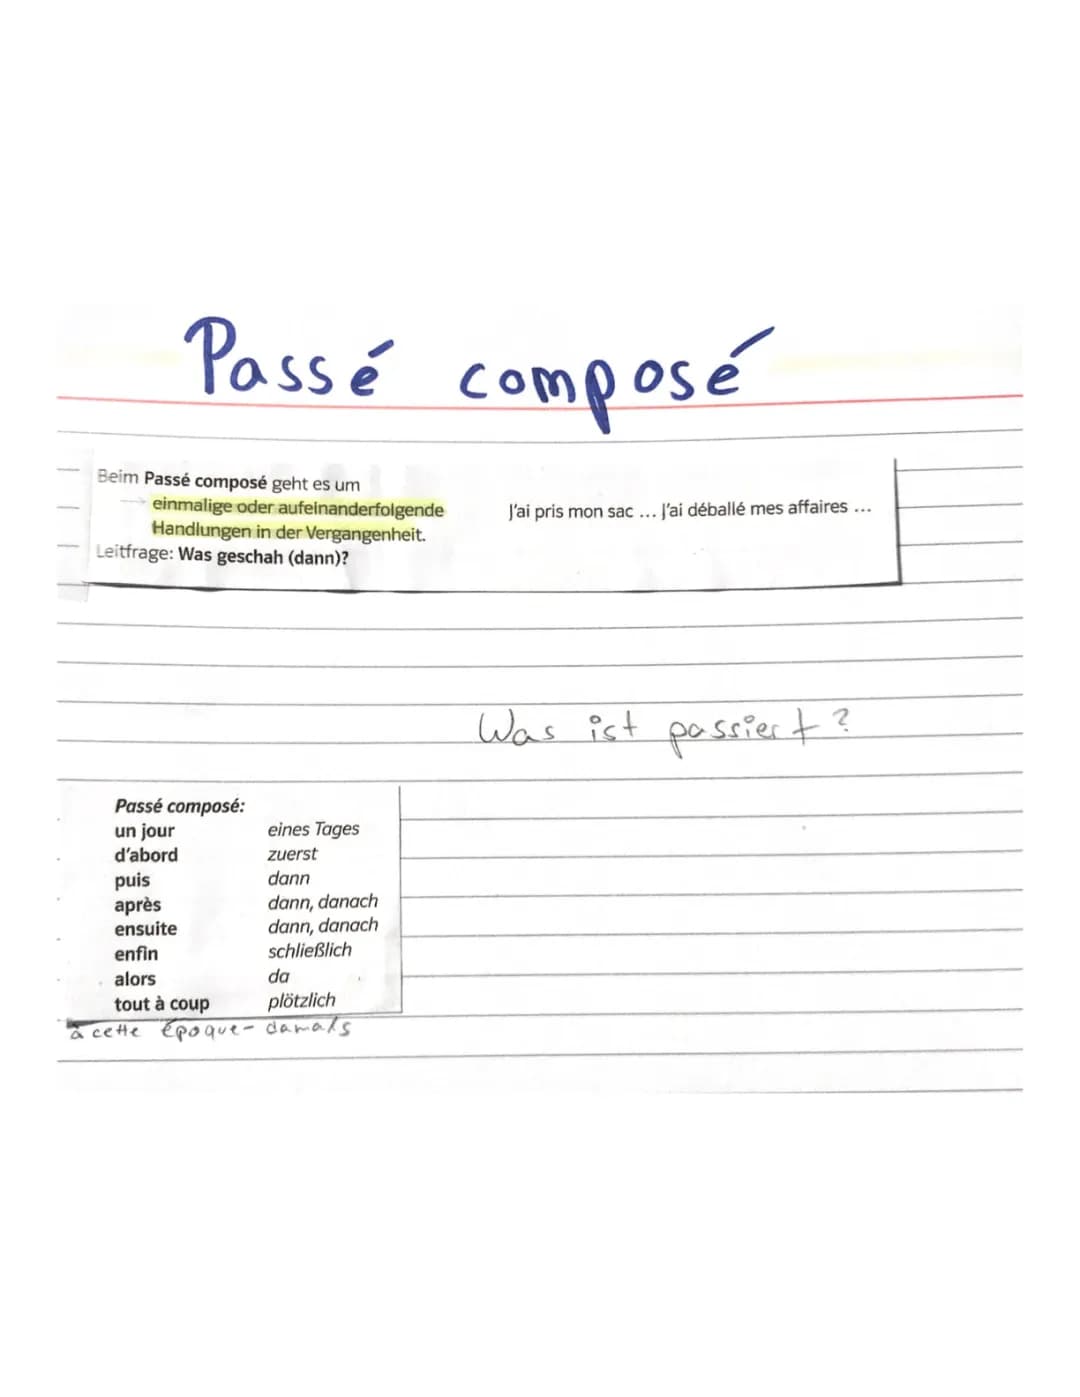 Passé composé
Beim Passé composé geht es um
→ einmalige oder aufeinanderfolgende
Handlungen in der Vergangenheit.
J'ai pris mon sac ... J'ai déballé mes affaires ...
Leitfrage: Was geschah (dann)?
Was ist passiert?
Passé composé:
un jour eines Tages
d'abord zuerst
puis dann
après dann, danach
ensuite dann, danach
enfin schließlich
alors da
tout à coup plötzlich
à cette Époque - damals